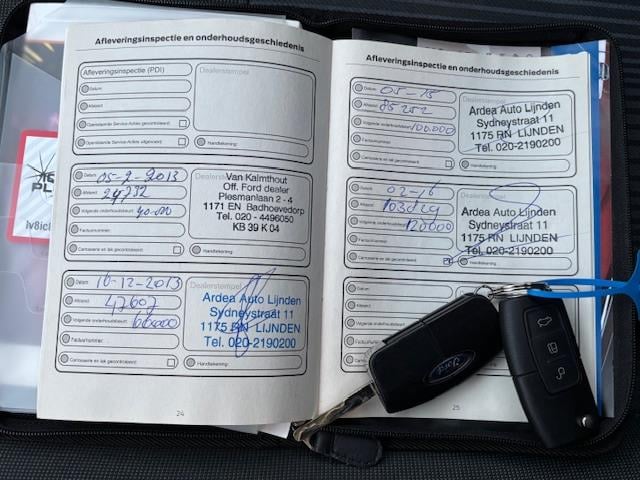 Afleveringsinspectie en onderhoudsgeschiedenis
Afleveringsinspectie (PDI)
Dealerstempel
Datum:
Afstand:
Openstaande Service Acties gecontroleerd:
Openstaande Service Acties uitgevoerd:
Handtekening:
Datum: 05-2-2013
Afstand: 24732
Volgende onderhoudsbeurt: 40.000
Factuurnummer:
Carrosserie en lak gecontroleerd:
Van Kalmthout
Off. Ford dealer
Plesmanlaan 2 - 4
1171 EN Badhoevedorp
Tel. 020 - 4496050
KB 39 K 04
Handtekening:
Datum: 10-12-2013
Afstand: 47607
Volgende onderhoudsbeurt: 60000
Factuurnummer:
Carrosserie en lak gecontroleerd:
Dealerstempel
Ardea Auto Lijnden
Sydneystraat 11
1175 RN LIJNDEN
Tel. 020-2190200
Handtekening:
24
Afleveringsinspectie en onderhoudsgeschiedenis
Datum: 05-15
Afstand: 85252
Volgende onderhoudsbeurt: 100.000
Factuurnummer:
Carrosserie en lak gecontroleerd:
Ardea Auto Lijnden
Sydneystraat 11
1175 RN LIJNDEN
Tel. 020-2190200
Handtekening:
Datum: 02-16
Afstand: 103029
Volgende onderhoudsbeurt: 120000
Factuurnummer:
Carrosserie en lak gecontroleerd:
Ardea Auto Lijnden
Sydneystraat 11
1175 RN LIJNDEN
Tel. 020-2190200
Handtekening:
Datum:
Afstand:
Dealerstempel
25
Ford